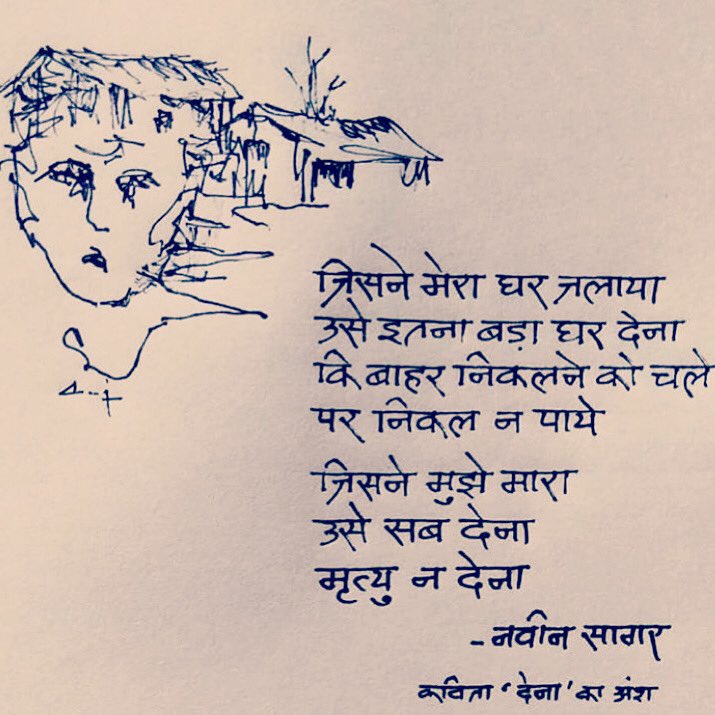 जिसने मेरा घर जलाया
उसे इतना बड़ा घर देना
कि बाहर निकलने को चले
पर निकल न पाये
जिसने मुझे मारा
उसे सब देना
मृत्यु न देना
-नवीन सागर
कविता 'देना' का अंश